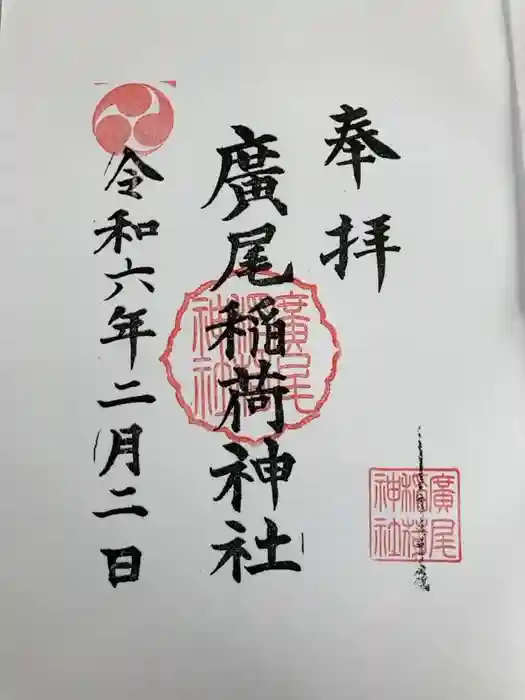 奉拝
廣尾稲荷神社
廣尾
稲荷
神社
令和六年二月二日
廣尾
稲荷
神社